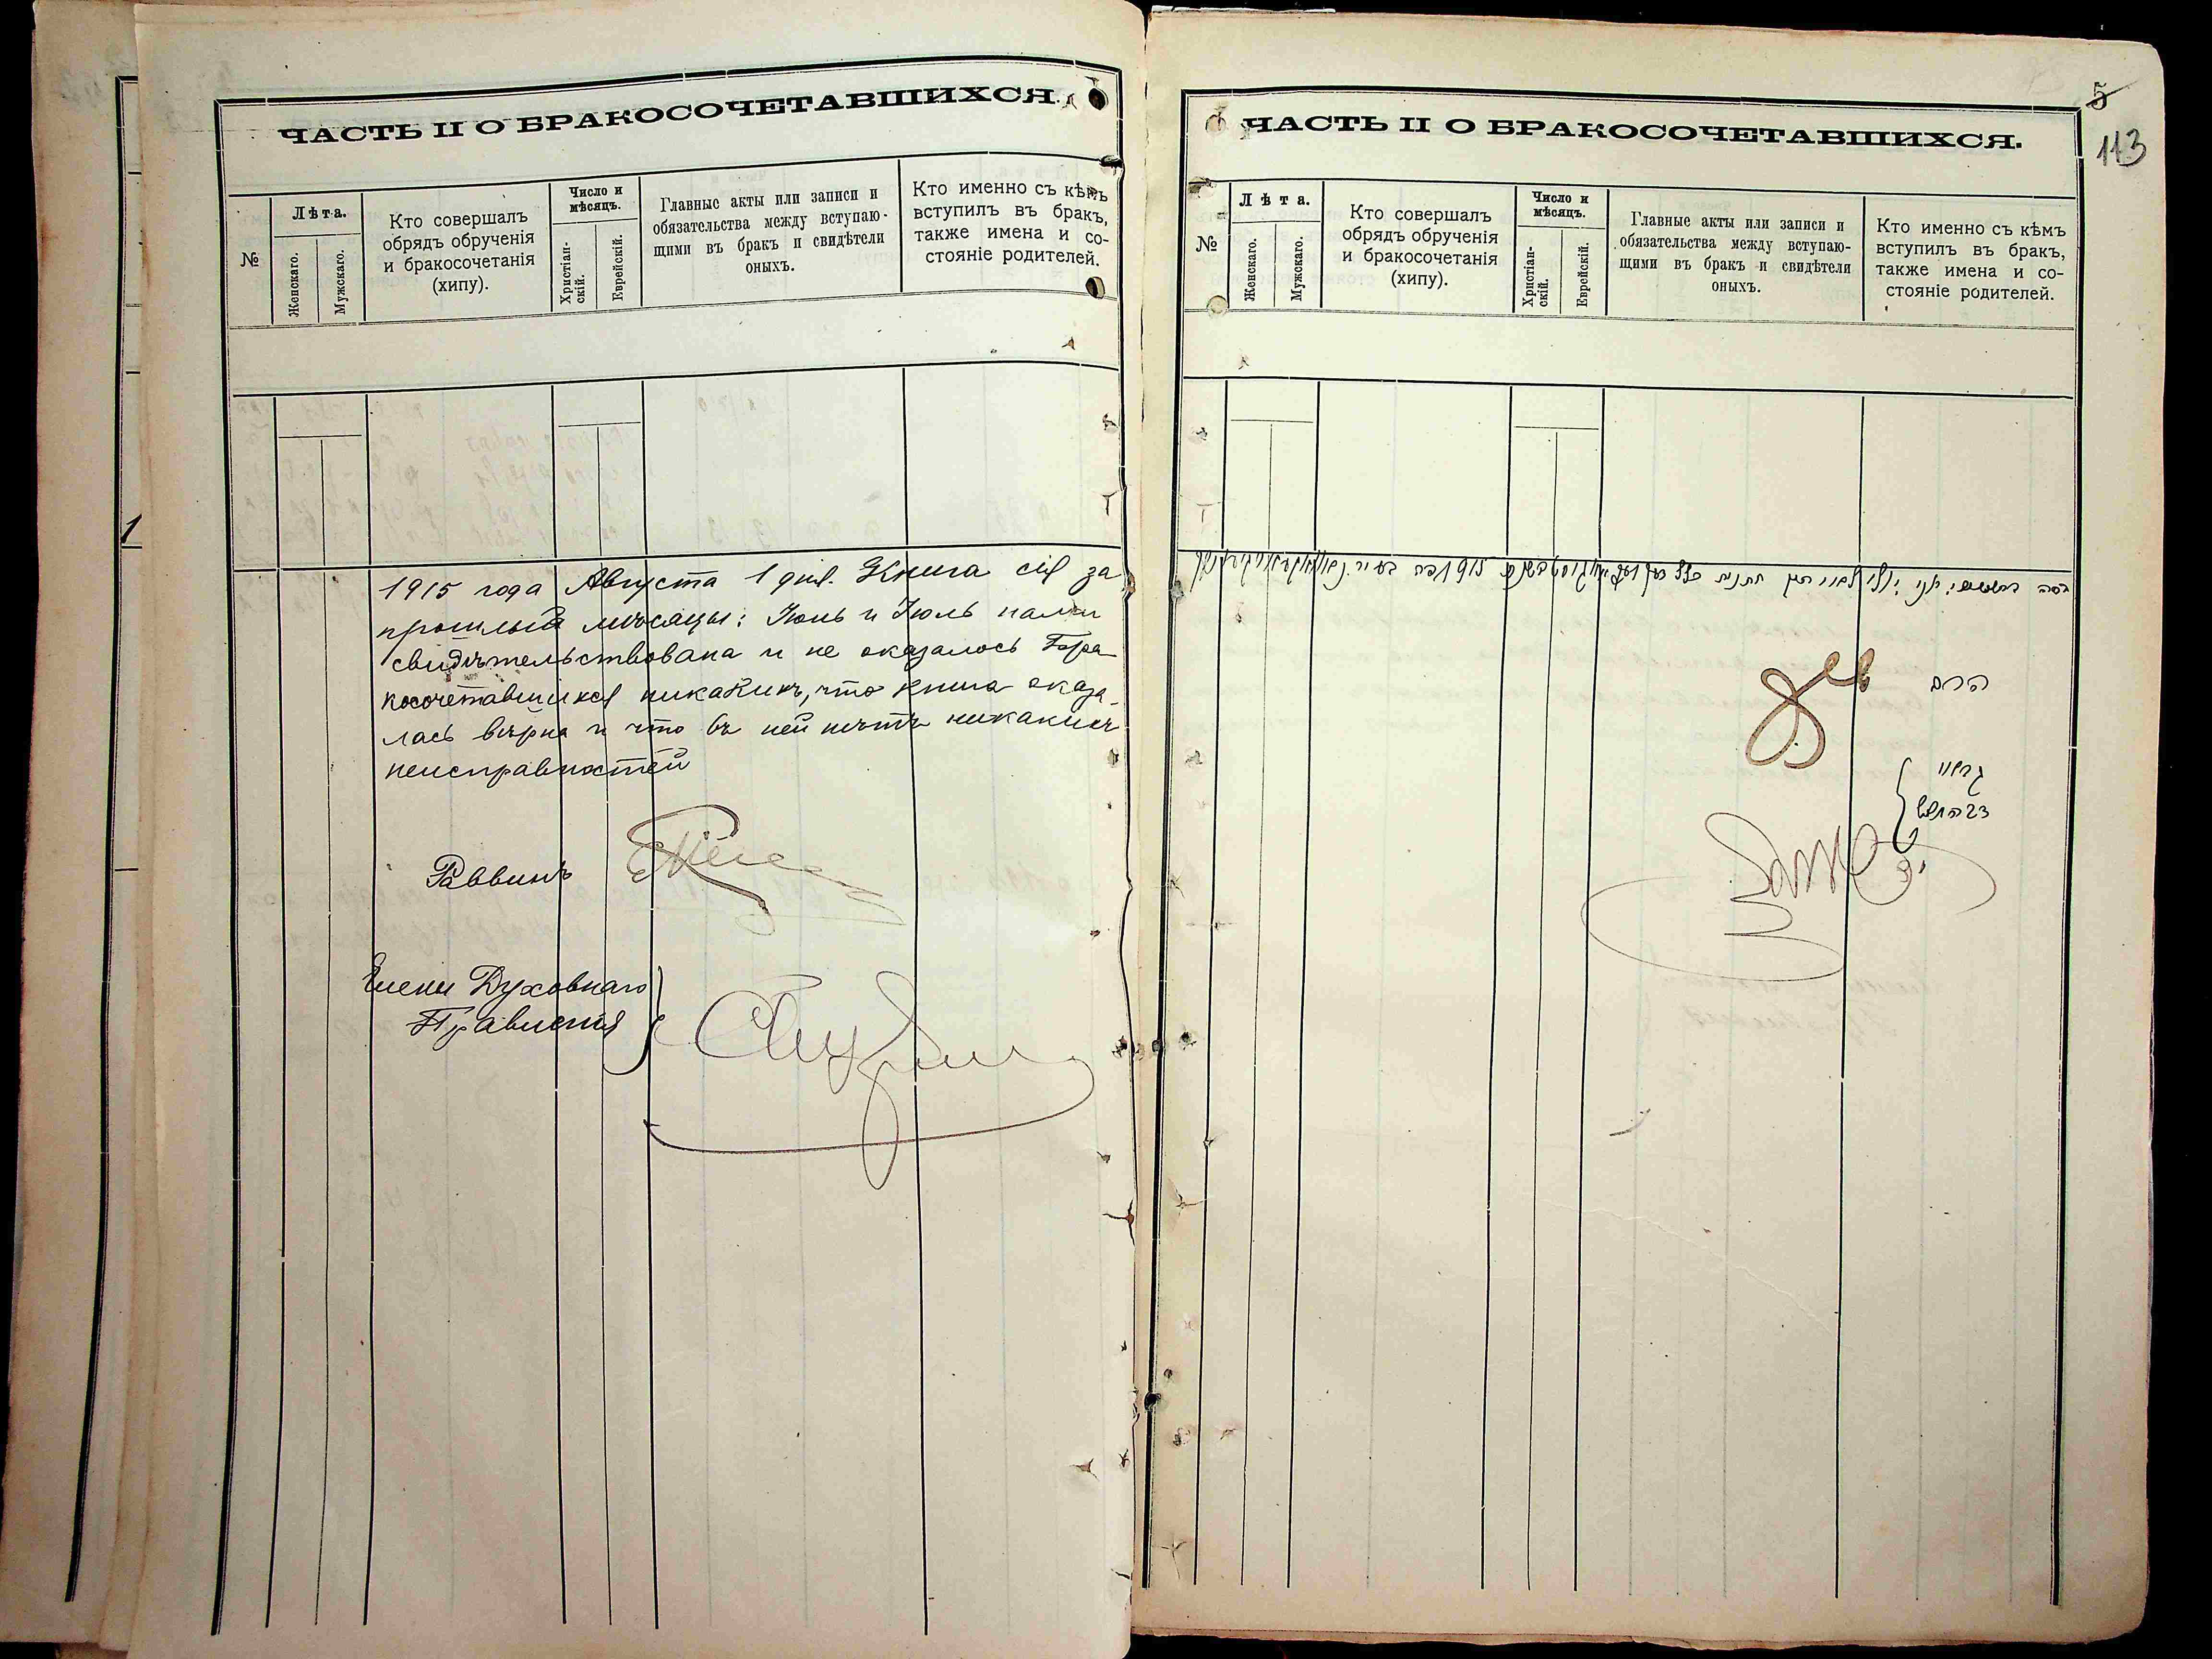 ЧАСТЬ II О БРАКОСОЧЕТАВШИХСЯ.
№
Лѣта.
Женскаго.
Мужскаго.
Кто совершалъ
обрядъ обрученія
и бракосочетанія
(хипу).
Число и
мѣсяцъ.
Христіан-
скій.
Еврейскій.
Главные акты или записи и
обязательства между вступаю-
щими въ бракъ и свидѣтели
оныхъ.
Кто именно съ кѣмъ
вступилъ въ бракъ,
также имена и со-
стояніе родителей.
1915 года Августа 1 дня. Книга сія за
прошлый мѣсяцы: Іюнь и Іюль нами
свидѣтельствована и не оказалось Бра
косочетавшихся никакихъ, что книга оказа-
лась вѣрна и что въ ней нѣтъ никакихъ
неисправностей
Раввинъ
Члены Духовнаго
Правленія
1
ЧАСТЬ II О БРАКОСОЧЕТАВШИХСЯ.
5
113
№
Лѣта.
Женскаго.
Мужскаго.
Кто совершалъ
обрядъ обрученія
и бракосочетанія
(хипу).
Число и
мѣсяцъ.
Христіан-
скій.
Еврейскій.
Главные акты или записи и
обязательства между вступаю-
щими въ бракъ и свидѣтели
оныхъ.
Кто именно съ кѣмъ
вступилъ въ бракъ,
также имена и со-
стояніе родителей.
הרב